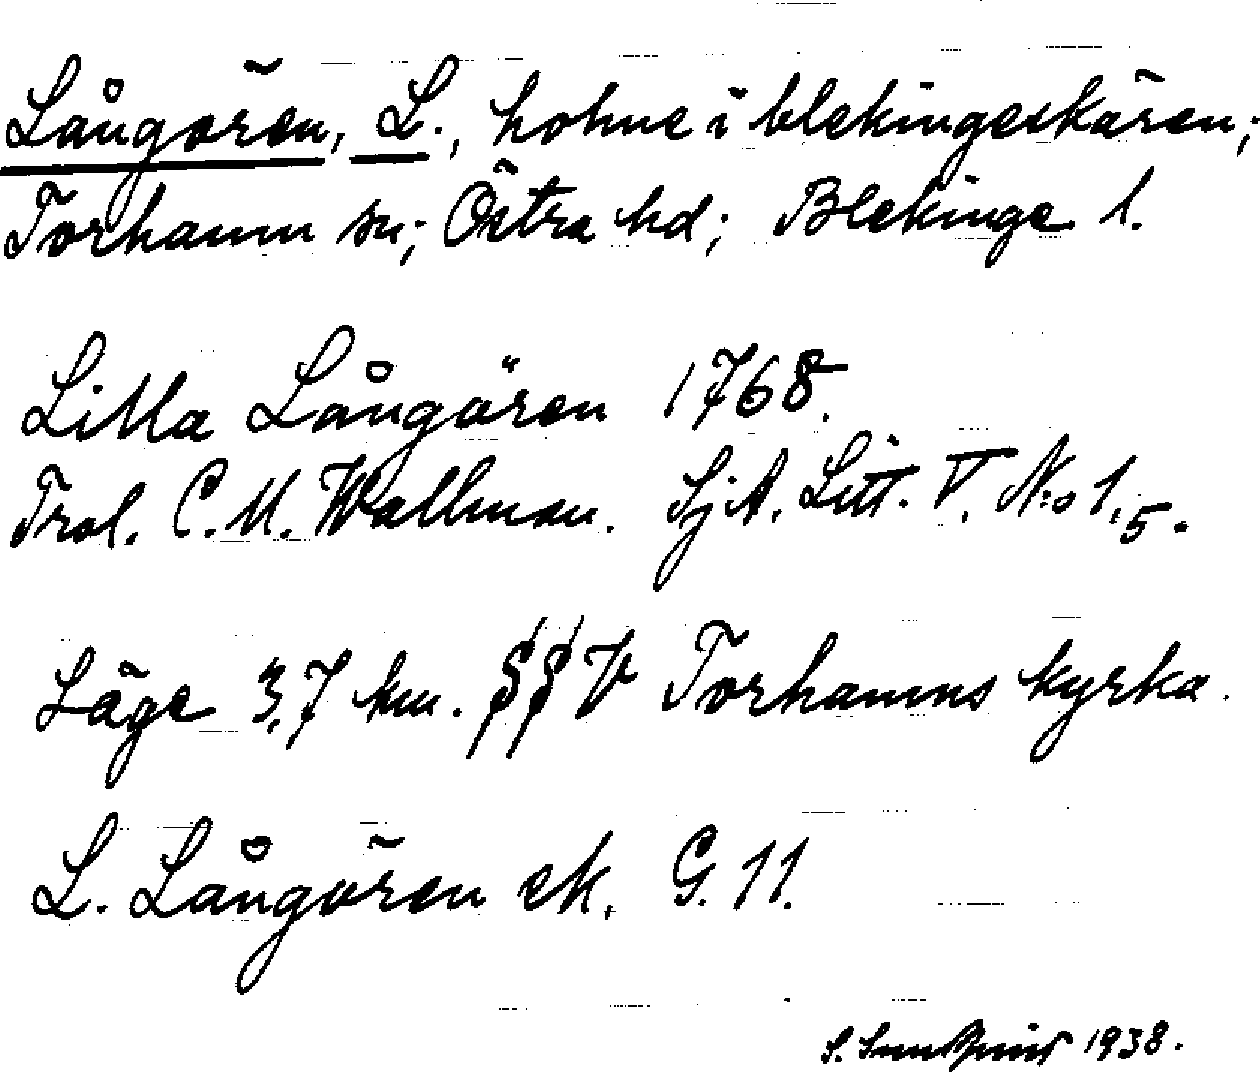 Långören, L., holme i blekingeskären;
Torhamn sn; Östra hd; Blekinge l.
Lilla Långören 1768.
Trol. C. U. Wallman. SjA. Litt. V. N:o 1,5.
Läge 3,7 km. SSV Torhamns kyrka.
L. Långören ek. G. 11.
S. 1938.